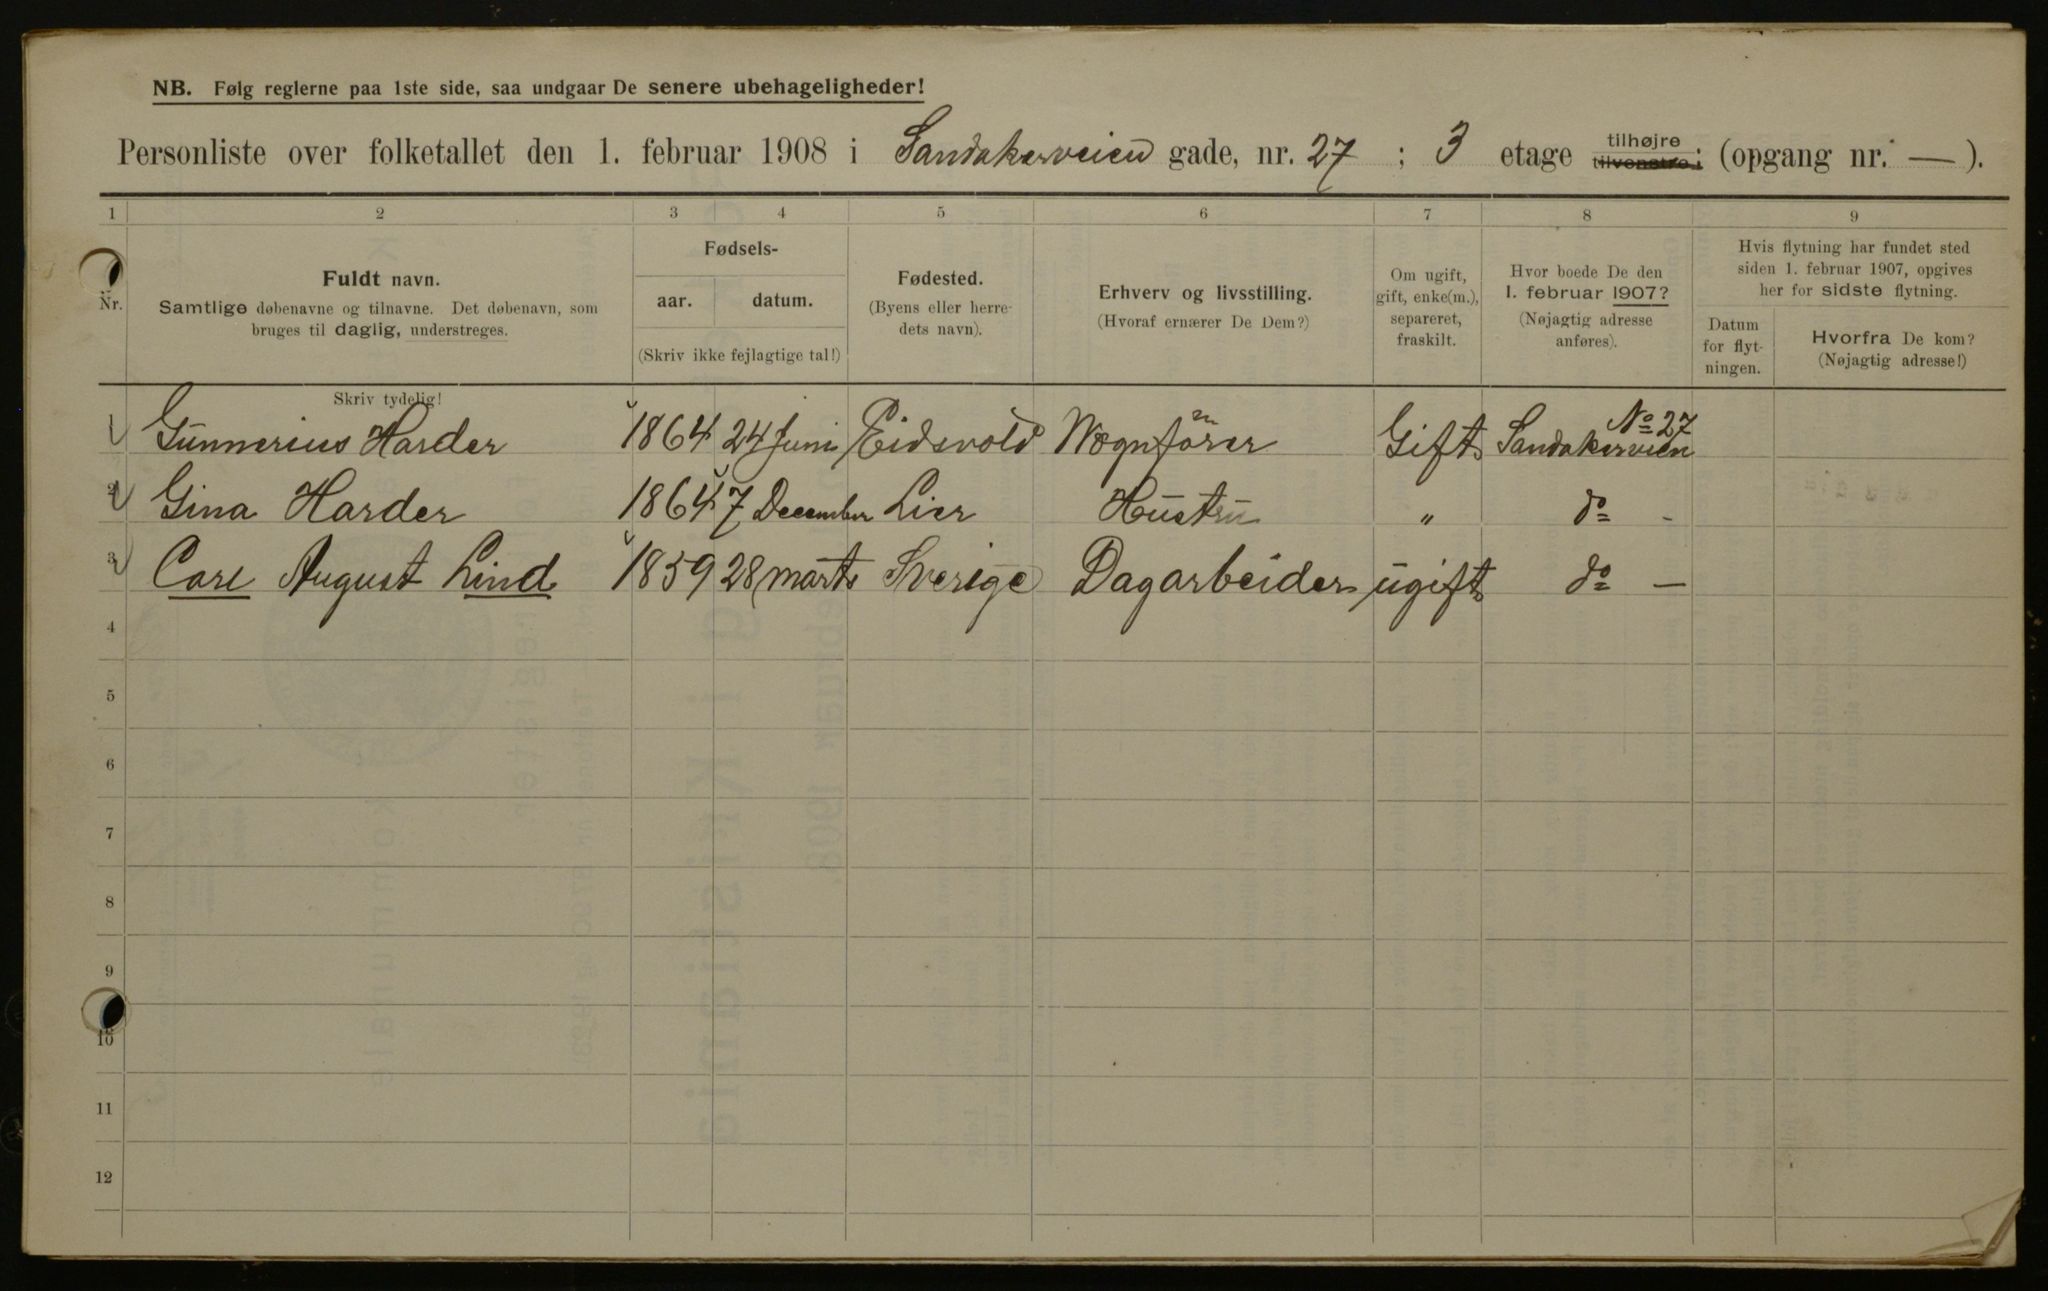 NB. Følg reglerne paa 1ste side, saa undgaar De senere ubehageligheder!
Personliste over folketallet den 1. februar 1908 i Sandakerveien gade, nr. 27 ; 3 etage tilhøjre tilvenstre; (opgang nr. — ).
1 2 3 4 5 6 7 8 9
Nr.
Fuldt navn.
Samtlige døbenavne og tilnavne. Det døbenavn, som
bruges til daglig, understreges.
Fødsels-
aar. datum.
(Skriv ikke fejlagtige tal!)
Fødested.
(Byens eller herre-
dets navn).
Erhverv og livsstilling.
(Hvoraf ernærer De Dem?)
Om ugift,
gift, enke(m.),
separeret,
fraskilt.
Hvor boede De den
1. februar 1907?
(Nøjagtig adresse
anføres).
Hvis flytning har fundet sted
siden 1. februar 1907, opgives
her for sidste flytning.
Datum
for flyt-
ningen.
Hvorfra De kom?
(Nøjagtig adresse!)
Skriv tydelig!
1 Gunnerius Harder 1864 24 Juni Eidsvold Vognfører Gift Sandakerveien No 27
2 Gina Harder 1864 7 December Lier Hustru " do -
3 Carl August Lind 1859 28 marts Sverige Dagarbeider ugift do —
4
5
6
7
8
9
10
11
12